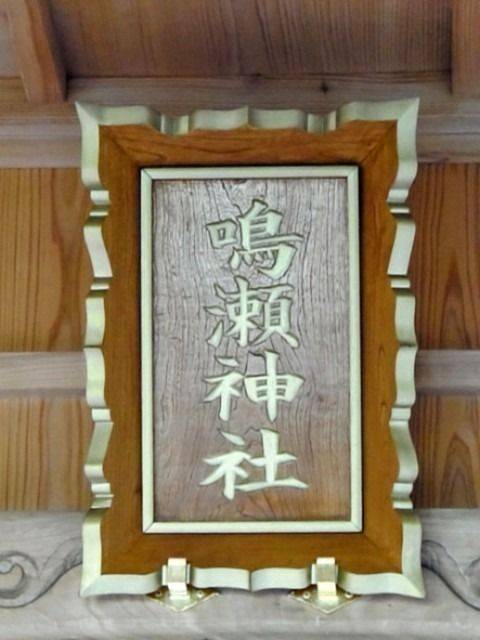 鳴瀬神社